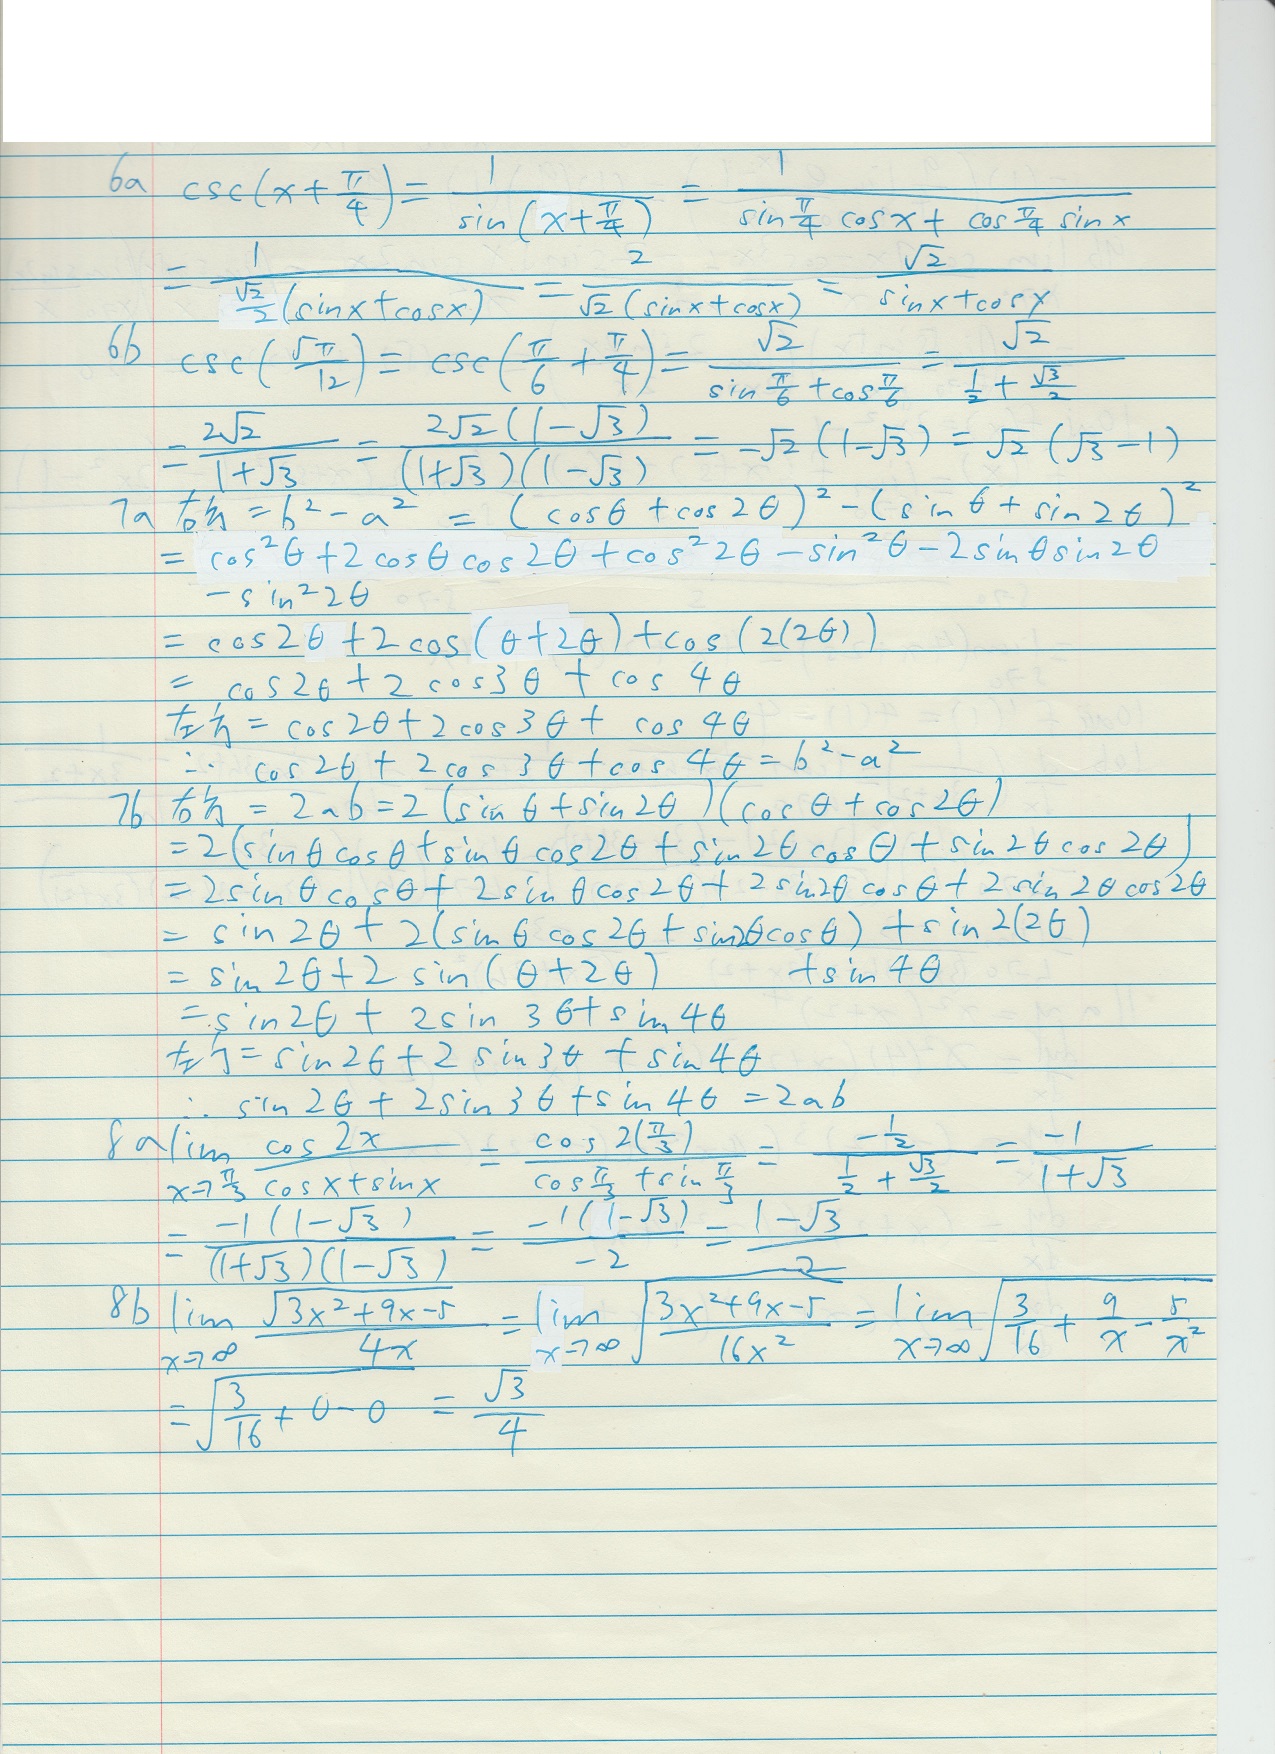 6a csc(x+π/4) = 1/sin(x+π/4) = 1/(sin π/4 cosx + cos π/4 sinx)
= 1/(√2/2 (sinx+cosx)) = 2/(√2 (sinx+cosx)) = √2/(sinx+cosx)
6b csc(5π/12) = csc(π/6 + π/4) = √2/(sin π/6 + cos π/6) = √2/(1/2 + √3/2)
= 2√2/(1+√3) = 2√2(1-√3)/((1+√3)(1-√3)) = -√2(1-√3) = √2(√3-1)
7a 右方 = b²-a² = (cosθ+cos2θ)²-(sinθ+sin2θ)²
= cos²θ+2cosθcos2θ+cos²2θ-sin²θ-2sinθsin2θ
-sin²2θ
= cos2θ+2cos(θ+2θ)+cos(2(2θ))
= cos2θ+2cos3θ+cos4θ
左方 = cos2θ+2cos3θ+cos4θ
∴ cos2θ+2cos3θ+cos4θ=b²-a²
7b 右方 = 2ab=2(sinθ+sin2θ)(cosθ+cos2θ)
=2(sinθcosθ+sinθcos2θ+sin2θcosθ+sin2θcos2θ)
=2sinθcosθ+2sinθcos2θ+2sin2θcosθ+2sin2θcos2θ
= sin2θ+2(sinθcos2θ+sin2θcosθ)+sin2(2θ)
= sin2θ+2sin(θ+2θ) +sin4θ
= sin2θ+2sin3θ+sin4θ
左方=sin2θ+2sin3θ+sin4θ
∴ sin2θ+2sin3θ+sin4θ=2ab
8a lim x→π/3 cos2x/(cosx+sinx) = cos2(π/3)/(cos π/3 + sin π/3) = (-1/2)/(1/2 + √3/2) = -1/(1+√3)
= -1(1-√3)/((1+√3)(1-√3)) = -1(1-√3)/-2 = (1-√3)/2
8b lim x→∞ √(3x²+9x-5)/4x = lim x→∞ √((3x²+9x-5)/16x²) = lim x→∞ √(3/16 + 9/x - 5/x²)
= √(3/16 + 0-0) = √3/4